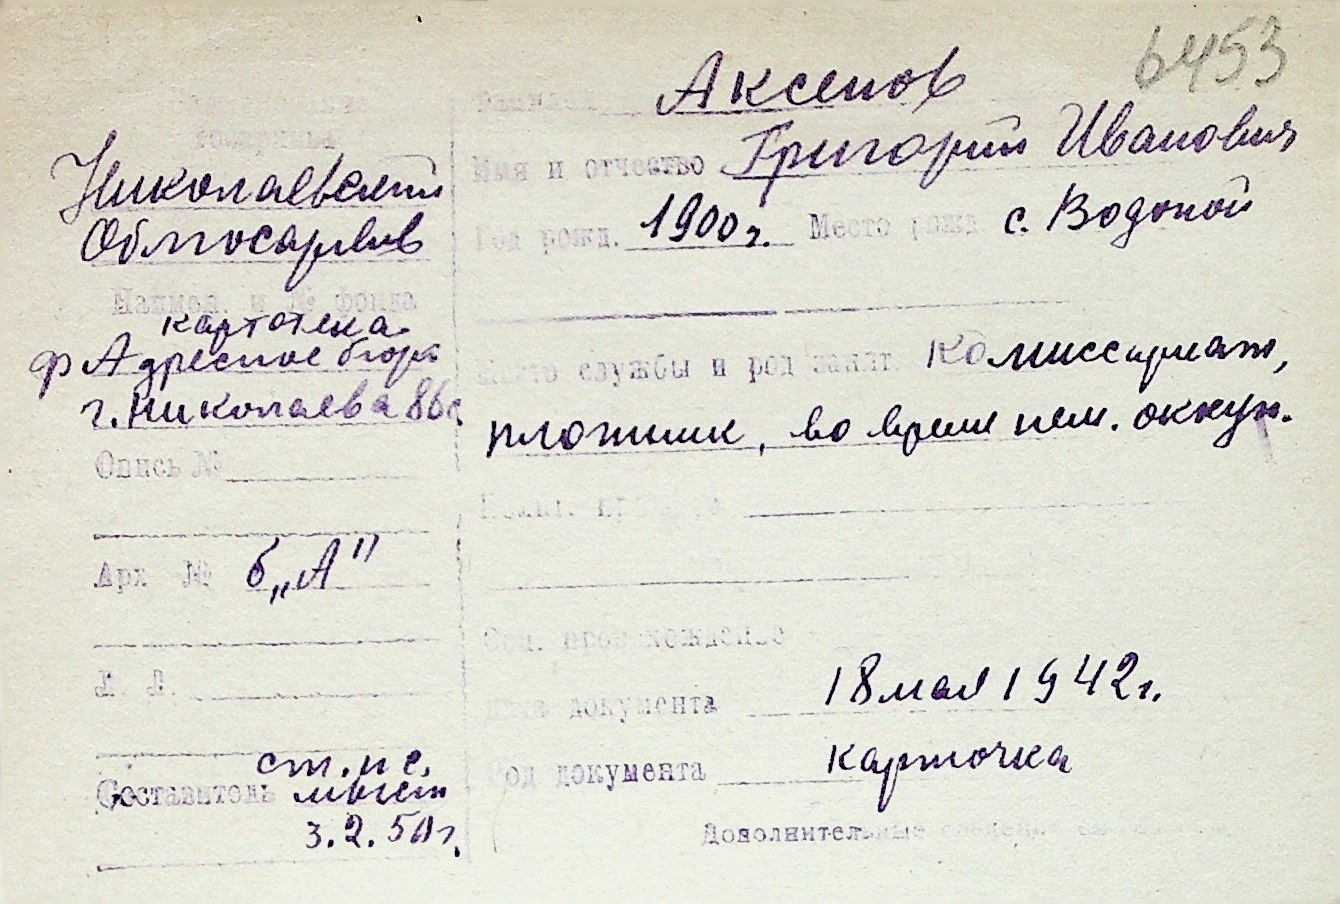 6453
госархива
Николаевский
Облгосархив
Наимен. и № фонда
картотека
ф Адресное бюро
г. Николаева 86с.
Опись №
Арх №
б„А"
Л. Л.
Составитель
ст. н с.
3.2.50г.
Фамилия Аксенов
Имя и отчество Григорий Иванович
Год рожд. 1900г. Место рожд. с. Водопой
Место службы и род занят. комиссариат,
плотник, во время нем. оккуп.
Соц. происхождение
Дата документа 18 мая 1942г.
Род документа карточка
Дополнительные сведения